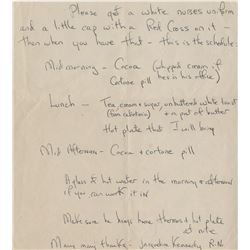 Please get a white nurses uniform
and a little cap with a Red Cross on it –
then when you have that – this is the schedule:
Mid morning – Cocoa (whipped cream if
Cortone pill
his office)
Lunch – Tea, cream & sugar, unbuttered white toast
& a pat of butter
Hot plate that I will bring
Mid Afternoon – Cocoa & cortone pill
A glass of hot water in the morning & afternoon
if you can work it in
Make sure he brings home thermos & hot plate
at nite
Many many thanks – Jacqueline Kennedy R.N.